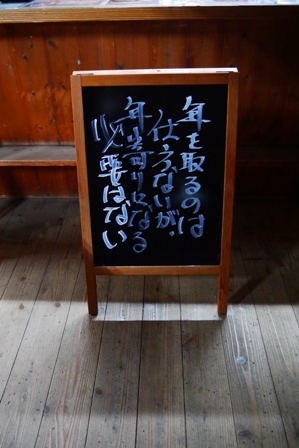 年を取るのは
仕方ないが、
年寄りになる
必要はない